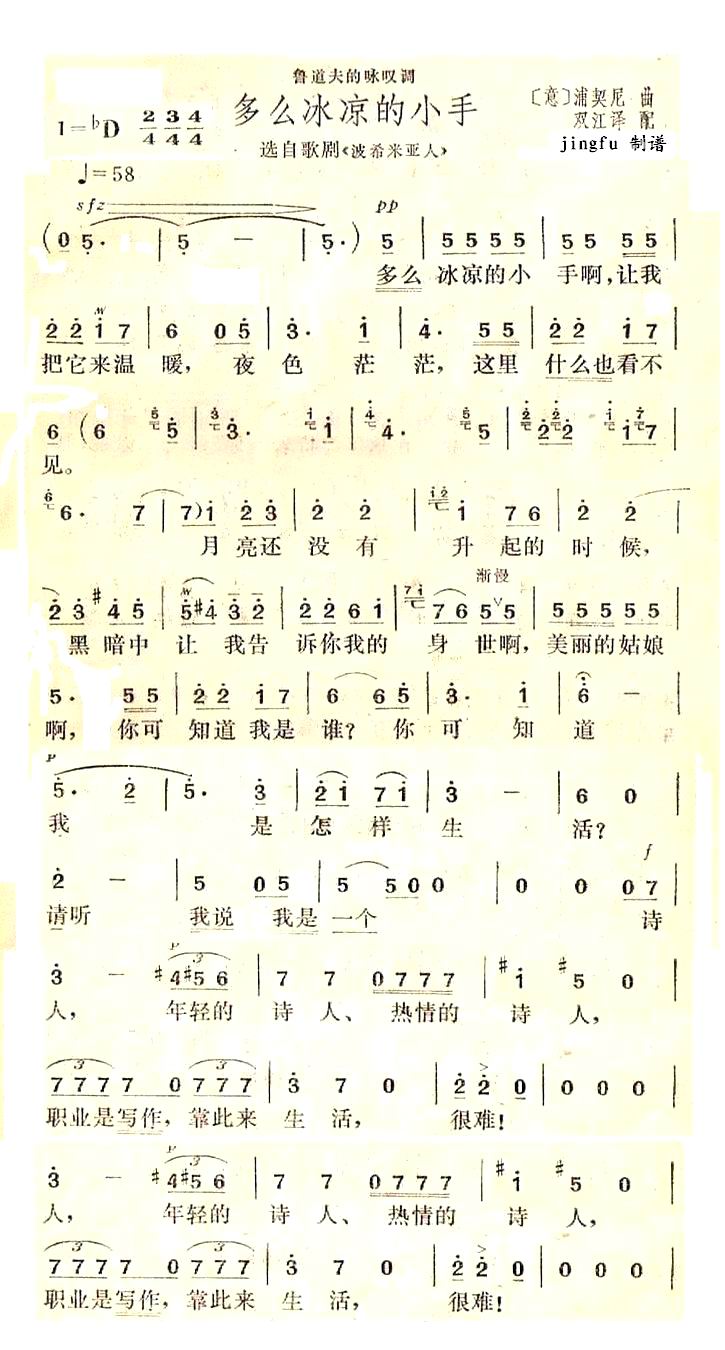 鲁道夫的咏叹调
多么冰凉的小手
〔意〕浦契尼 曲
1=♭D 2/4 3/4 4/4
双江译 配
选自歌剧《波希米亚人》
jingfu 制谱
♩=58
sfz pp
(0 5· | 5 - | 5·) 5 | 5 5 5 5 | 5 5 5 5 |
多么 冰凉的小 手啊,让我
2 2 1 7 | 6 0 5 | 3· 1 | 4· 5 5 | 2 2 1 7 |
把它来温 暖, 夜 色 茫 茫, 这里 什么也看不
6 (6 5 | 3· 1 | 4· 5 | 2 2 1 7 |
见。
6· 7 | 7) 1 2 3 | 2 2 | 1 7 6 | 2 2 |
月 亮还 没 有 升 起的 时 候,
渐慢
2 3 #4 5 | 5 #4 3 2 | 2 2 6 1 | 7 6 5 5 | 5 5 5 5 5 |
黑 暗中 让 我告 诉你我的 身 世啊, 美丽的姑娘
5· 5 5 | 2 2 1 7 | 6 6 5 | 3· 1 | 6 - |
啊, 你可 知道 我是 谁? 你 可 知 道
p
5· 2 | 5· 3 | 2 1 7 1 | 3 - | 6 0 |
我 是 怎 样 生 活?
f
2 - | 5 0 5 | 5 5 0 0 | 0 0 0 7 |
请听 我说 我是 一个 诗
p
3 - #4 #5 6 | 7 7 0 7 7 7 | #1 #5 0 |
人, 年轻的 诗 人、 热情的 诗 人,
3 3
7 7 7 7 0 7 7 7 | 3 7 0 | 2 2 0 | 0 0 0 |
职业是写作, 靠此来 生 活, 很难!
p
3 - #4 #5 6 | 7 7 0 7 7 7 | #1 #5 0 |
人, 年轻的 诗 人、 热情的 诗 人,
3 3
7 7 7 7 0 7 7 7 | 3 7 0 | 2 2 0 | 0 0 0 |
职业是写作, 靠此来 生 活, 很难!